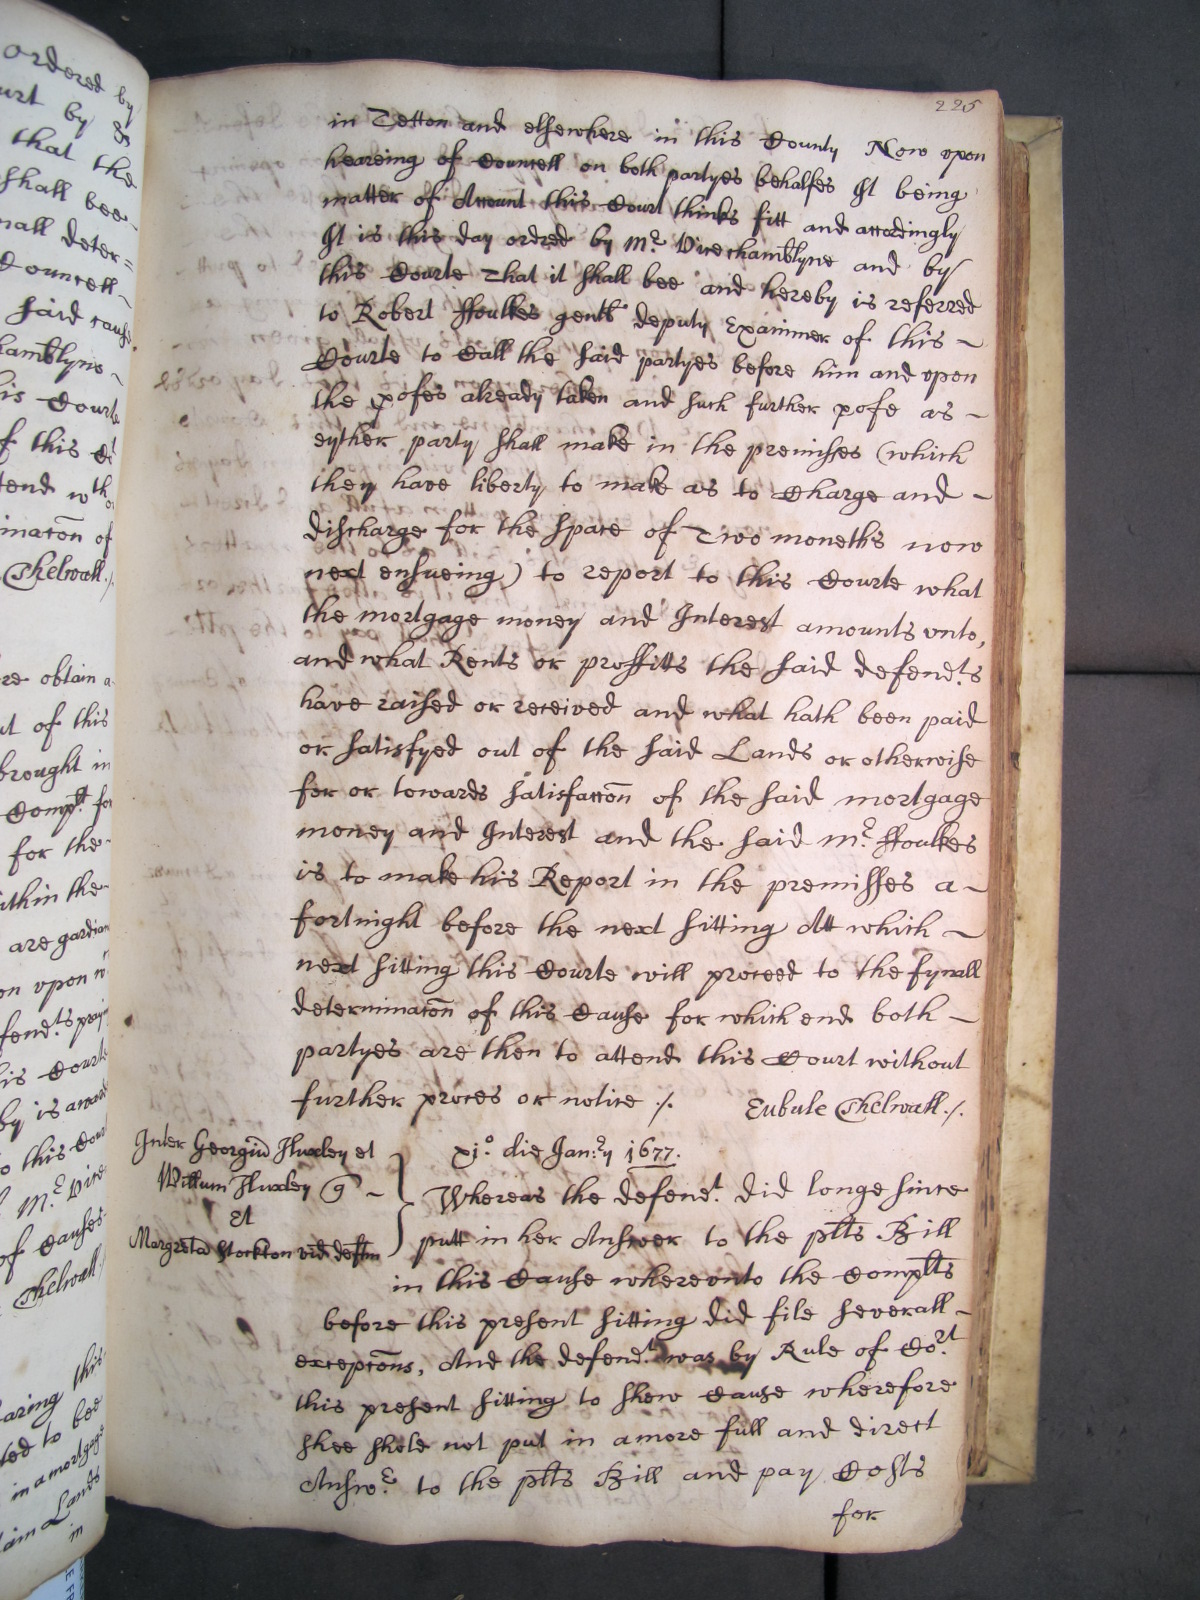 225
in Tetton and elsewhere in this County Now upon
heareing of Councell on both partyes behalfes It being
matter of Account this Court thinks fitt and accordingly
It is this day ordred by Mr. Vicechamblyne and by
this Courte That it shall bee and hereby is referred
to Robert ffoulkes gentl deputy Examiner of this –
Courte to Call the said partyes before him and upon
the pofes already taken and such further pofe as –
eyther party shall make in the premisses (which
they have liberty to make as to Charge and –
discharge for the space of Two moneths now
next ensueing) to report to this Courte what
the mortgage money and Interest amounts unto,
and what Rents or proffitts the said defend.ts
have raised or received and what hath been paid
or satisfyed out of the said Lands or otherwise
for or towards satisfaccon of the said mortgage
money and Interest and the said Mr. ffoulkes
is to make his Report in the premisses a –
fortnight before the next sitting Att which –
next sitting this Courte will proceed to the fynall
determinacon of this Cause for which end both –
partyes are then to attend this Court without
further proces or notice ./. Eubule Thelwall ./.
Inter Georgiu Huxley et
Willum Huxley q –
Et
Margreta Stockton vid deften
xjo. die Jan:ry 1677.
Whereas the defend.t did longe since
putt in her Answer to the plts Bill
in this Cause whereunto the Complts
before this present sitting did file severall –
excepcons, And the defend.t was by Rule of Co.rt
this present sitting to shew Cause wherefore
shee shold not put in a more full and direct
Answ.r to the plts Bill and pay Costs
for
ordered by
that the
shall bee
nall deter=
Councell –
said cause
hamblyne –
his Courte
of this
tend wth
inacon of
Thelwall ./.
re obtain a
ut of this
brought in
Complt for
for the
ithin the
are gardian
on upon
fend.ts
his Courte
by is
to this Cour
Mr. Vice
of Causes
Thelwall
earing this
ted to bee
in a mortgage
Lands
in